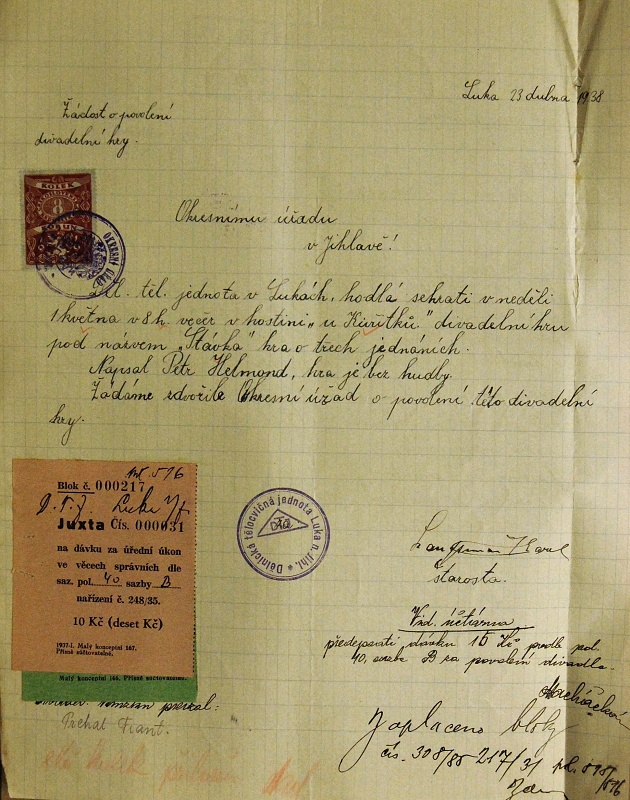 Luka 23 dubna 1938
Žádost o povolení
divadelní hry.
KOLEK
8
KORUN
OKRESNÍ ÚŘAD
Okresnímu úřadu
v Jihlavě!
Děl. těl. jednota v Lukách, hodlá sehrati v neděli
1 května v 8 h. večer v hostinci „u Kuřitků" divadelní hru
pod názvem „Stávka" hra o třech jednáních.
Napsal Petr Helmond, hra je bez hudby.
Žádáme zdvořile Okresní úřad o povolení této divadelní
hry.
Blok č. 000217
D.T.J. Luka
Juxta Čís. 000031
na dávku za úřední úkon
ve věcech správních dle
saz. pol. 40 sazby B
nařízení č. 248/35.
10 Kč (deset Kč)
1937-I. Malý konceptní 167.
Přísně súčtovatelné.
Malý konceptní 166. Přísně súčtovatelné.
Dělnická tělocvičná jednota Luka n. Jihl.
DTJ
Karel
starosta.
Vrd. účtárna
předepsati dávku 10 Kč podle pol.
40, sazba B za povolení divadla.
převzal:
Prchal Frant.
Zaplaceno bloky
čís. 308/85 217/31